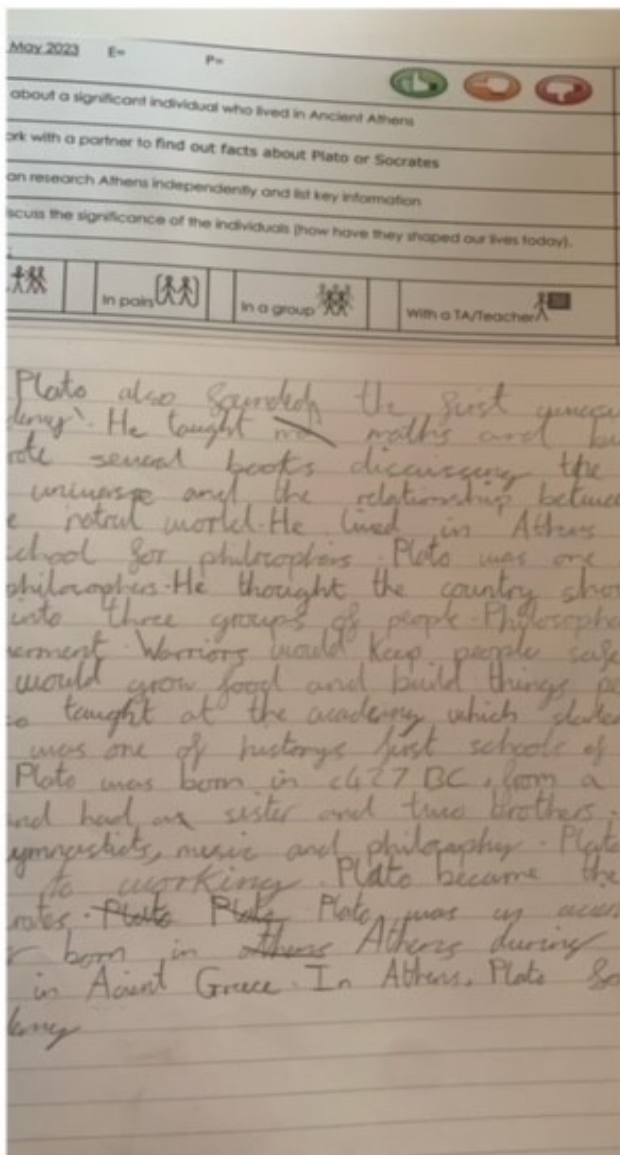 May 2023 E= P=
about a significant individual who lived in Ancient Athens
ork with a partner to find out facts about Plato or Socrates
an research Athens independently and list key information
scuss the significance of the individuals (how have they shaped our lives today).
In pairs In a group With a TA/Teacher
Plato also founded the first
demy". He taught maths and
ote several books discussing the
universe and the relationship
e natrul world. He lived in Athens
chool for philosophers. Plato was one
philosophers. He thought the country sho
into three groups of people. Philosophe
ernment. Warriors would keep people safe
would grow food and build things
o taught at the academy which
was one of historys first schools of
Plato was born in c427 BC, from a
nd had a sister and two brothers.
ymnastics, music and philosophy. Plato
to working. Plato became the
rates. Plato Plato Plato was
r born in Athens Athens during
in Acient Greece. In Athens, Plato fo
demy